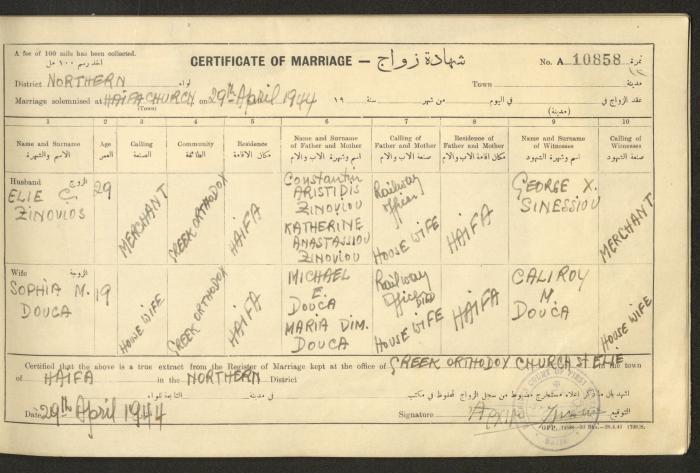 A fee of 100 mils has been collected.
CERTIFICATE OF MARRIAGE — شهادة زواج
No. A 10858 نمرة
District NORTHERN لواء
Town مدينة
Marriage solemnised at HAIFA CHURCH on 29th April 1944 19 سنة من شهر في اليوم عقد الزواج في
(Town) (مدينة)
1 2 3 4 5 6 7 8 9 10
Name and Surname الاسم والشهرة
Age العمر
Calling الصنعة
Community الطائفة
Residence مكان الاقامة
Name and Surname of Father and Mother اسم وشهرة الاب والام
Calling of Father and Mother صنعة الاب والام
Residence of Father and Mother مكان اقامة الاب والام
Name and Surname of Witnesses اسم وشهرة الشهود
Calling of Witnesses صنعة الشهود
Husband الزوج
ELIE C.
ZINOVIOS
29
MERCHANT
GREEK ORTHODOX
HAIFA
Constantin
ARISTIDIS
ZINOVIOU
KATHERINE
ANASTASSIOU
ZINOVIOU
Railway
Officer
HOUSE WIFE
HAIFA
GEORGE X.
SINESSIOU
MERCHANT
Wife الزوجة
SOPHIA M.
DOUCA
19
HOUSE WIFE
GREEK ORTHODOX
HAIFA
MICHAEL
E.
DOUCA
MARIA DIM.
DOUCA
Railway
HOUSE WIFE
HAIFA
CALIROY
M.
DOUCA
HOUSE WIFE
Certified that the above is a true extract from the Register of Marriage kept at the office of GREEK ORTHODOX CHURCH St ELIE in the town
of HAIFA in the NORTHERN District
في مدينة التابعة للواء
اشهد بان ما ذكر اعلاه مستخرج مضبوط من سجل الزواج المحفوظ في مكتب
Date 29th April 1944
Signature التوقيع